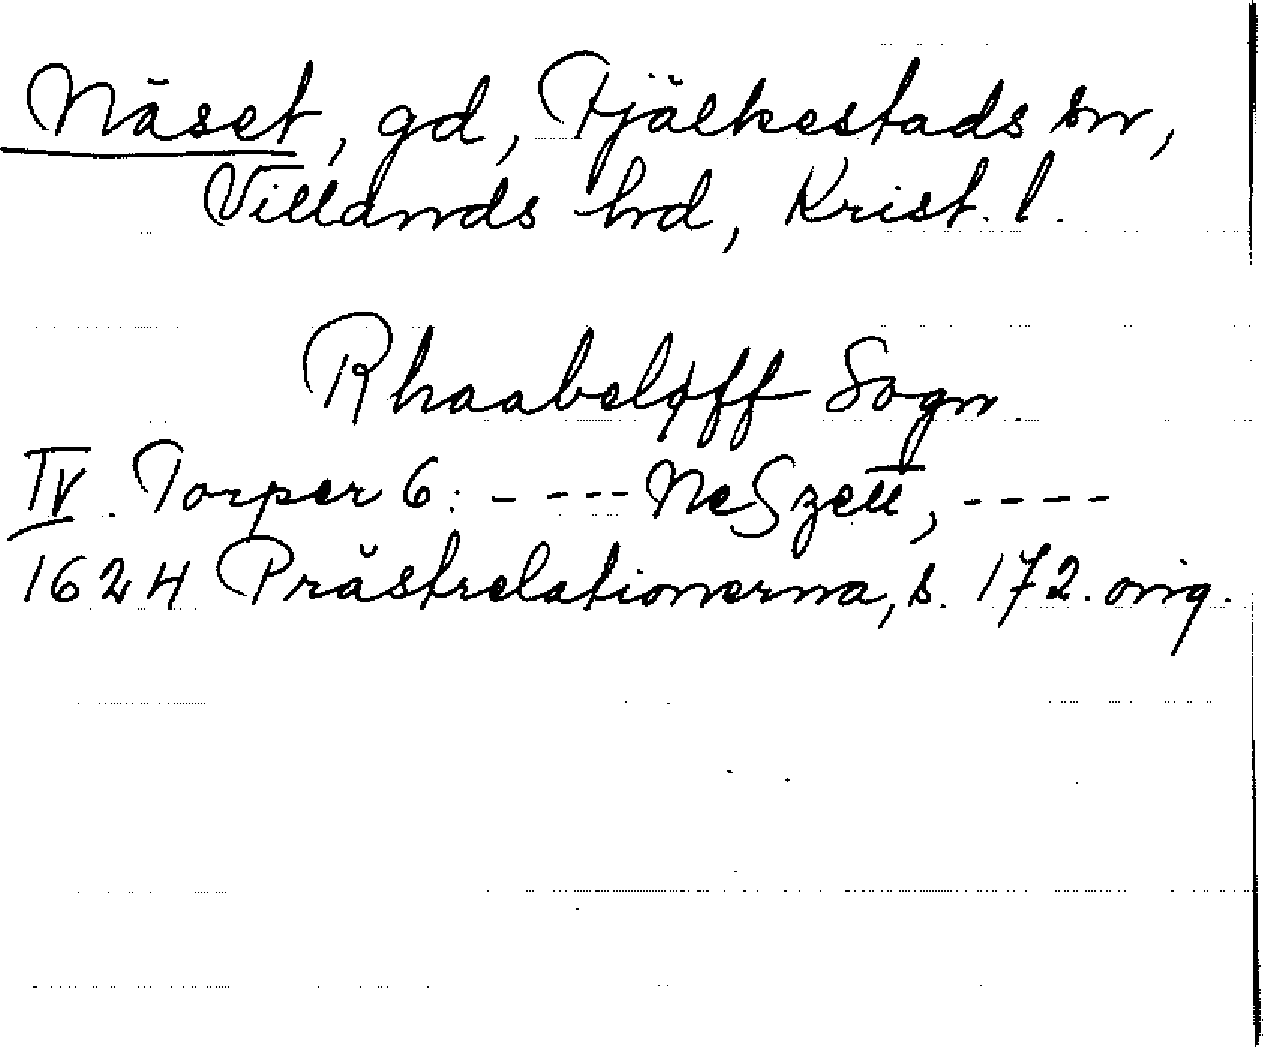 Näset, gd, Fjälkestads sn,
Villands hd, Krist. l.
Rhaabeløff Sogn
IV. Torper 6: - --- Neszett, ----
1624 Prästrelationerna, s. 172. orig.